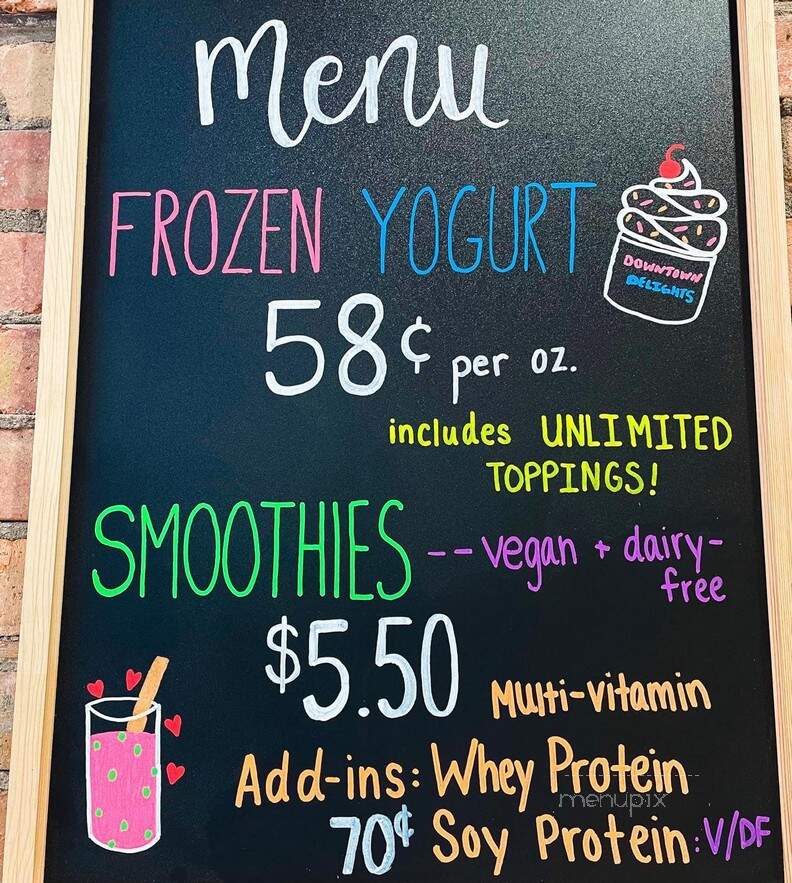 Menu
FROZEN YOGURT
DOWNTOWN
DELIGHTS
58¢ per oz.
includes UNLIMITED
TOPPINGS!
SMOOTHIES -- vegan + dairy-
free
$5.50
Multi-vitamin
Add-ins: Whey Protein
menupix
70¢ Soy Protein: V/DF